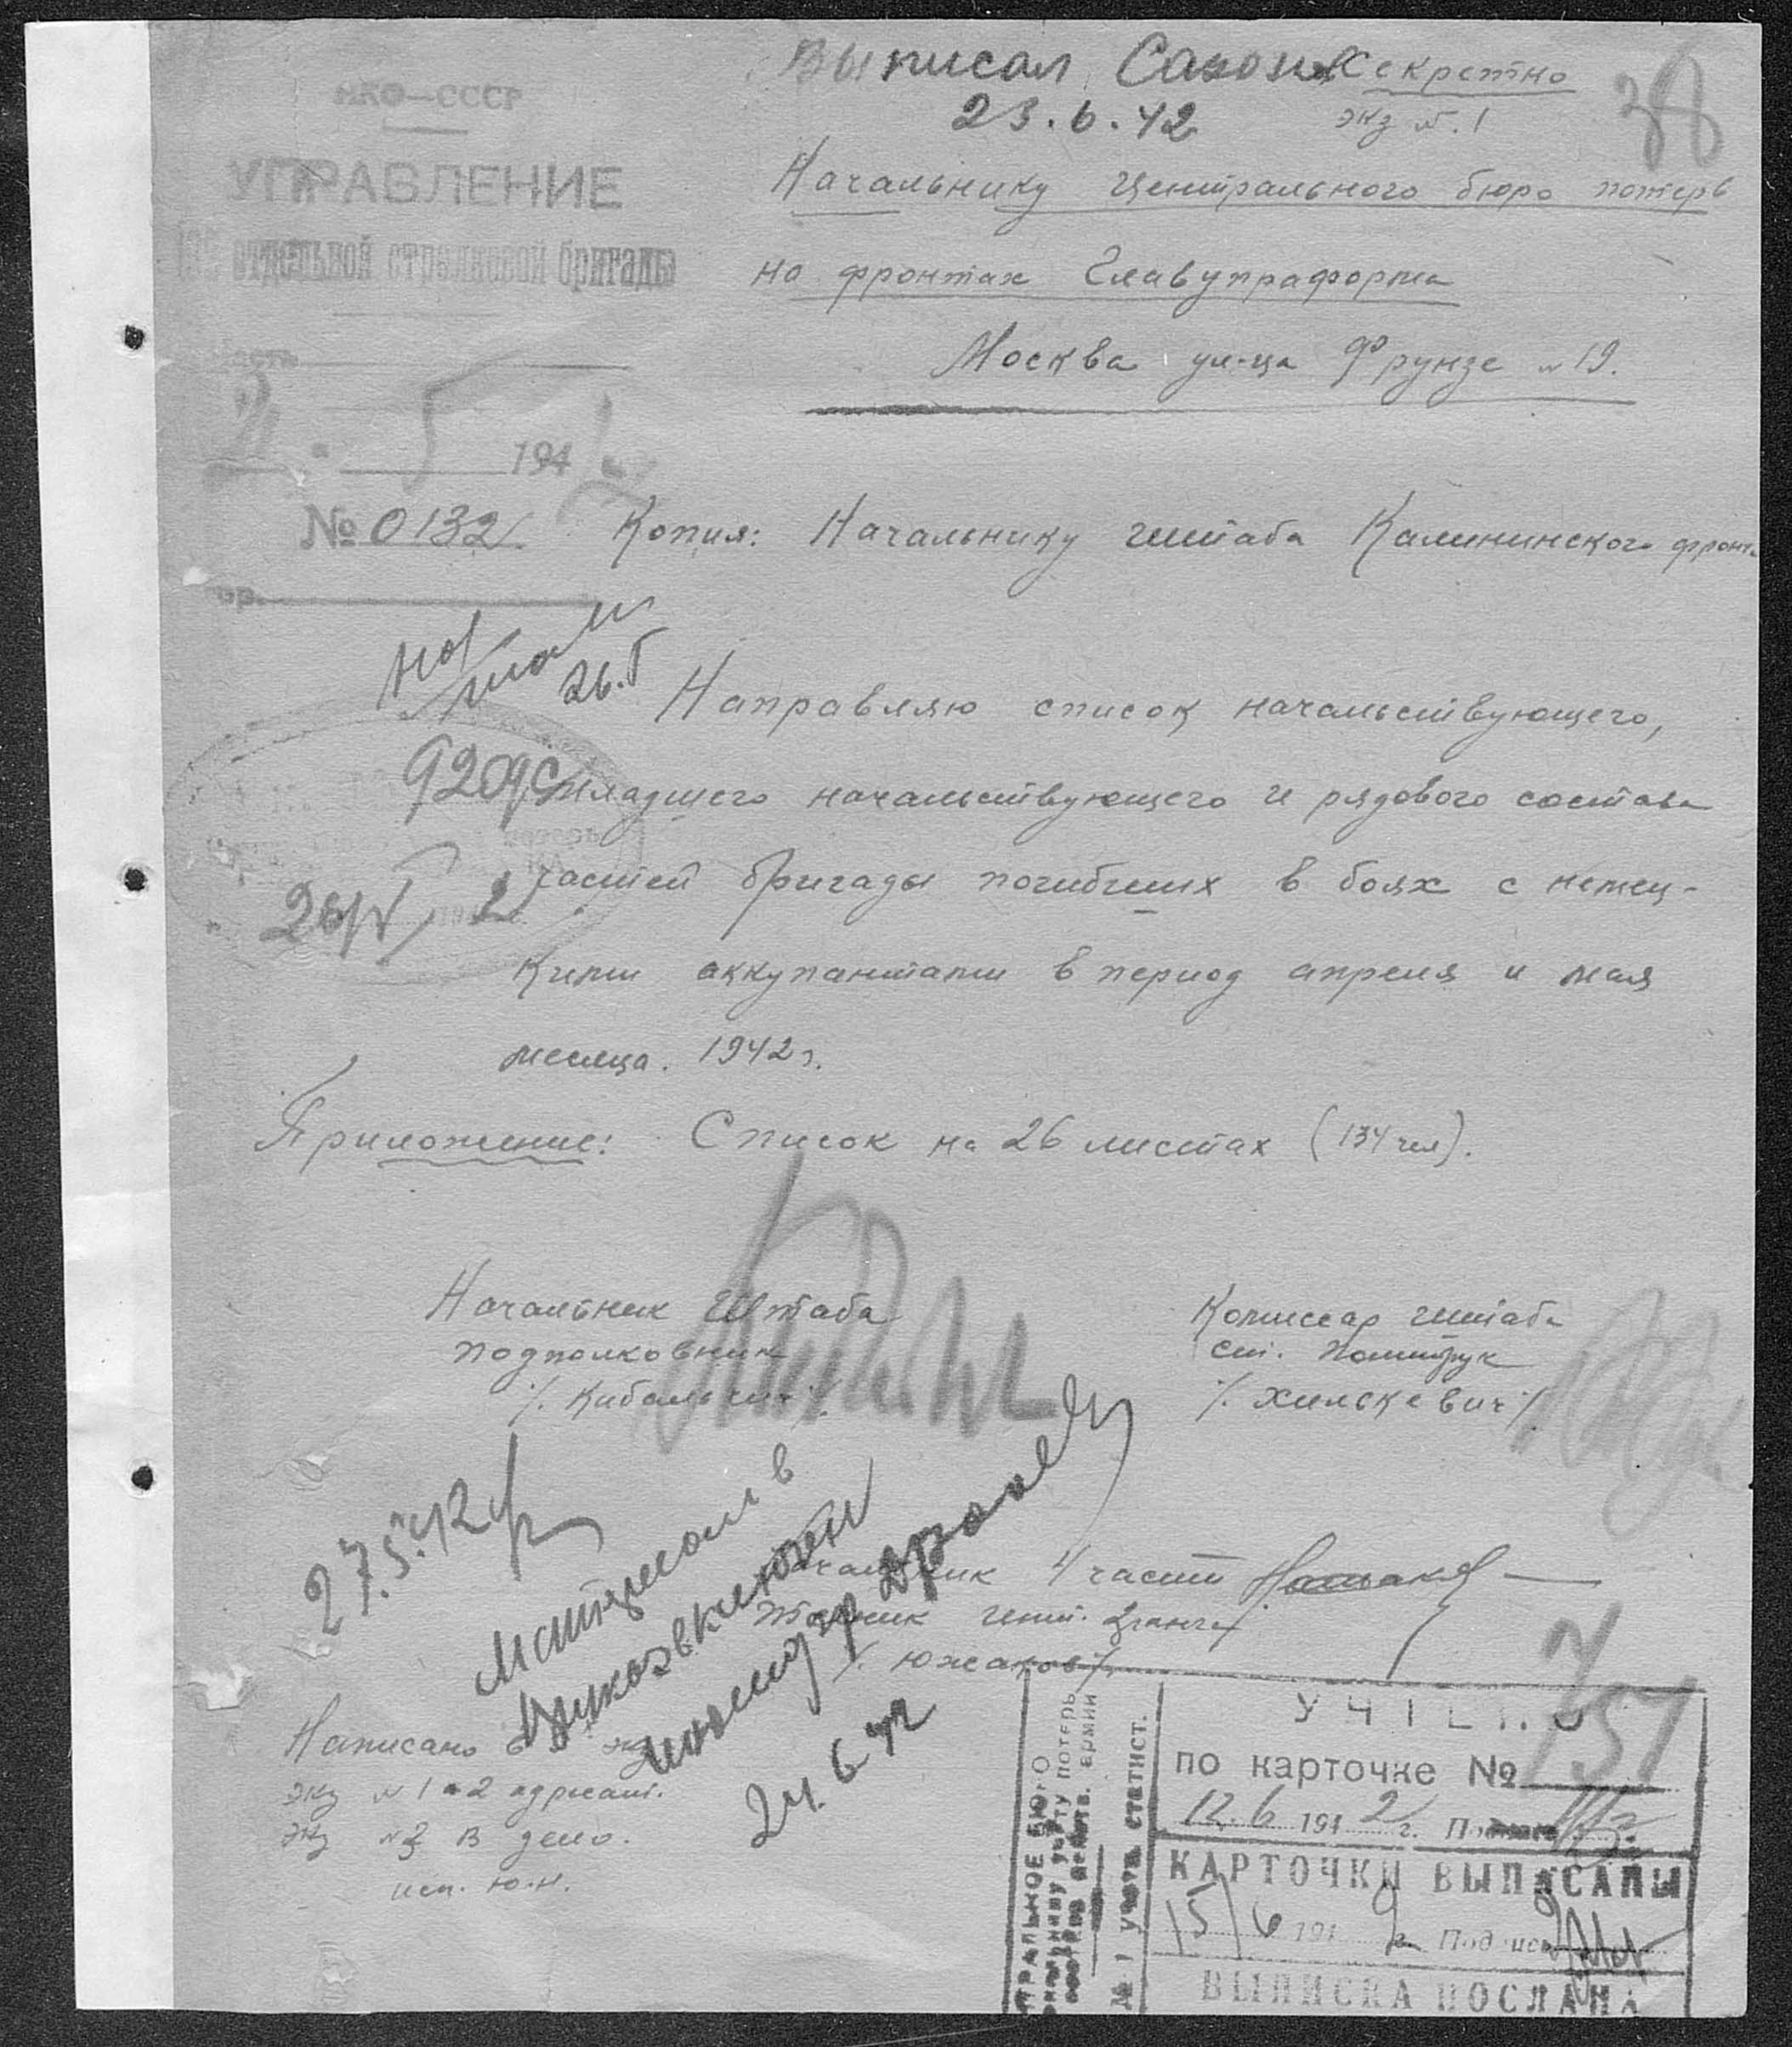 Выписал Сазонов Секретно
23.6.42 экз №.1
38
НКО—СССР
УПРАВЛЕНИЕ
отдельной стрелковой бригады
Начальнику Центрального бюро потерь
на фронтах Главупраформа
Москва ул-ца Фрунзе №19.
часть
2 " 5 1942
№ 0132
Копия: Начальнику штаба Калининского фронта
гор.
26.5
Направляю список начальствующего,
9209с
младшего начальствующего и рядового состава
частей бригады погибших в боях с немец-
26/V 2
кими аккупантами в период апреля и мая
месяца. 1942г.
Приложение: Список на 26 листах (134 чел).
Начальник Штаба
подполковник
/. Кибальчич /.
Комиссар штаба
ст. Политрук
/. Хилскевич /.
27.5.42
Начальник 4 части
Техник инт. 2 ранга
/. Южаков /.
24.6.42
Написано в экз
экз №1-2 адресат.
Экз №3 в дело.
исп. Ю.Н.
ЦЕНТРАЛЬНОЕ БЮРО
учету потерь
действ. армии
№ 1 учетн. статист.
УЧТЕНО
по карточке № 751
12.6 1942 г. Подпись
КАРТОЧКИ ВЫПИСАНЫ
15/6 194 г. Подпись
ВЫПИСКА ПОСЛАНА